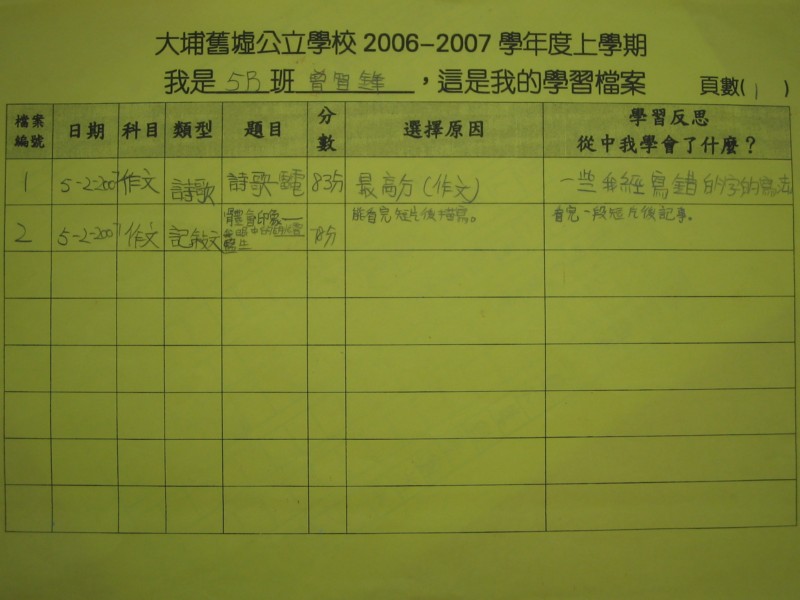 大埔舊墟公立學校 2006-2007 學年度上學期
我是 5B 班 曾智鋒 ，這是我的學習檔案 頁數( 1 )
檔案編號 日期 科目 類型 題目 分數 選擇原因 學習反思 從中我學會了什麼？
1 5-2-2007 作文 詩歌 詩歌- 83分 最高分(作文) 一些我經寫錯的字的寫法
2 5-2-2007 作文 記敘文 能看完短片後描寫。 看完一段短片後記事。